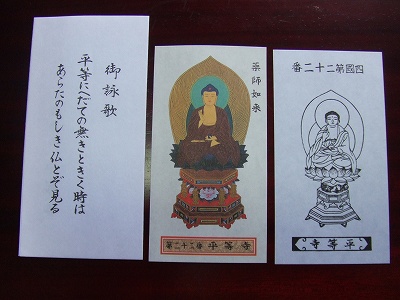 御詠歌
平等にへだての無きときく時は
あらたのもしき仏とぞ見る
薬師如来
第二十二番 平等寺
四國第二十二番
平等寺